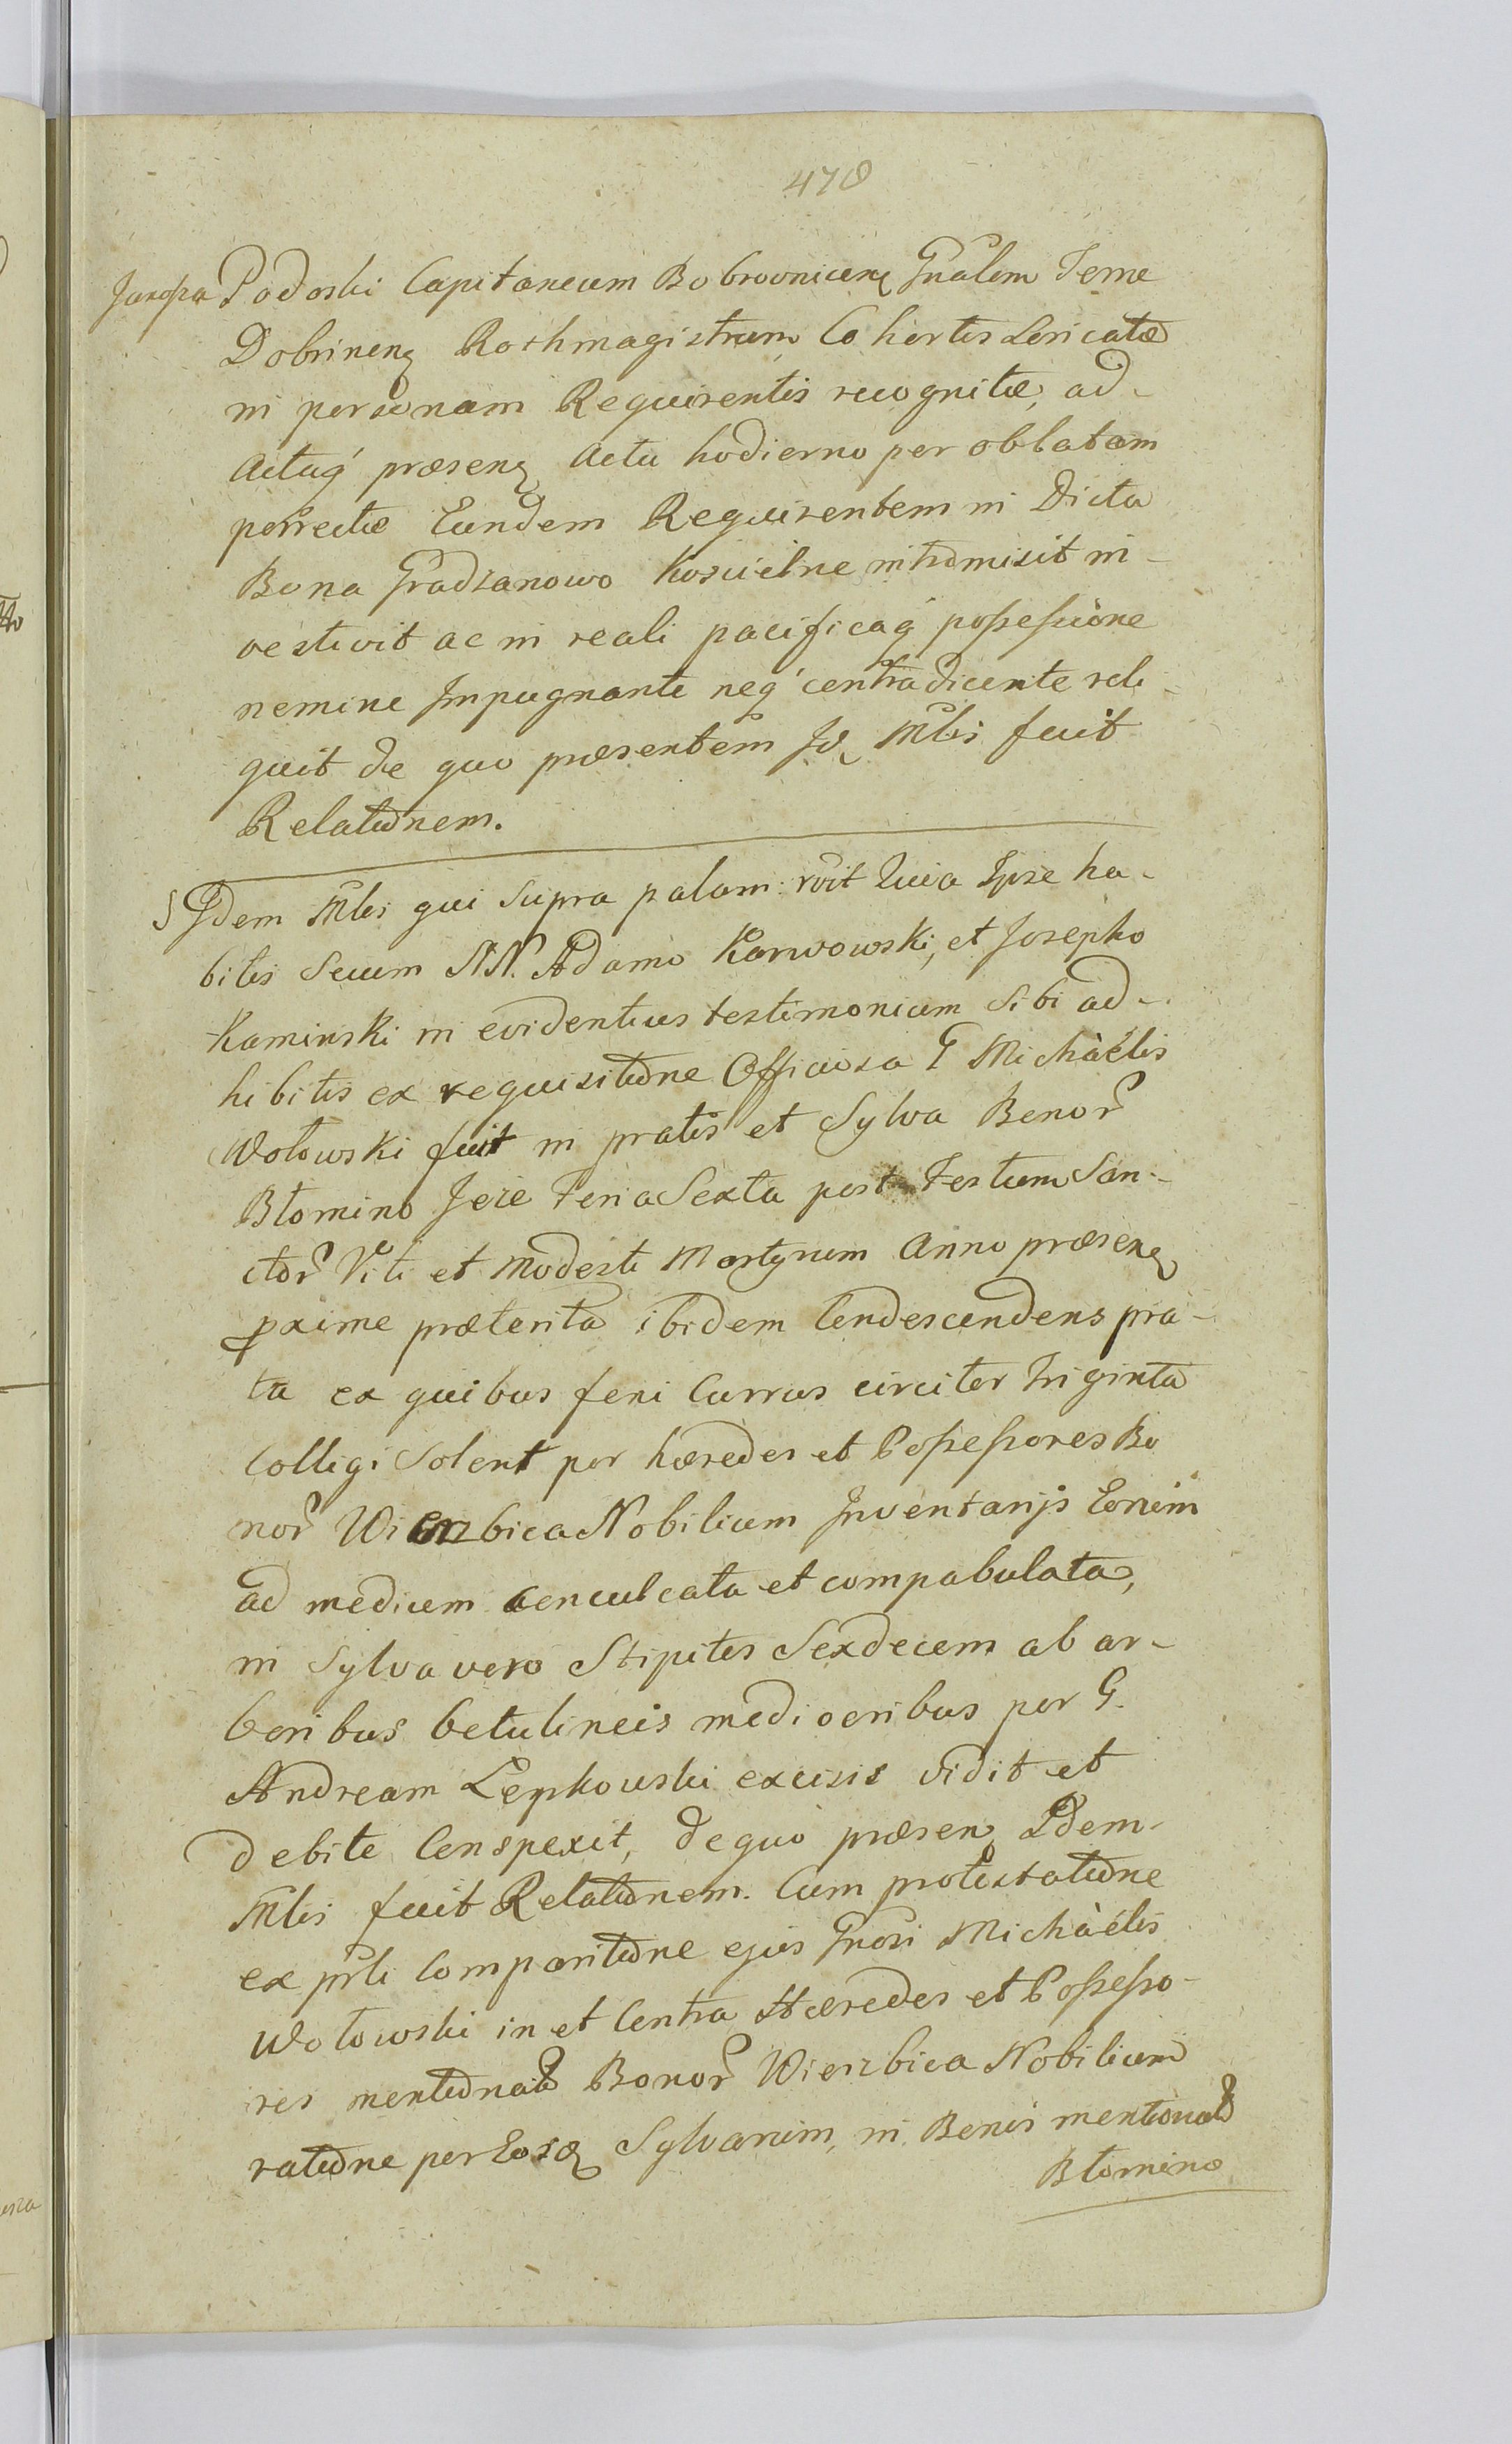 478
Junosza Podoski Capitaneum Bobrovnicens Gnalem Terræ
Dobrinens Rothmagistrum Cohortis Loricatæ
in personam Requirentis recognitæ, ad
Actaq præsens Actu hodierno per oblatam
porrectæ Eundem Requirentem in Dicta
Bona Gradzanowo Koscielne intromisit in-
vestivit ac in reali pacificaq possessione
nemine Impugnante neq contradicente reli-
quit de quo præsentem Id Mlis fecit
Relationem.
§ Idem Mlis qui Supra palam: rvit Quia Ipse ha-
bitis Secum NN. Adamo Karwowski, et Josepho
Kaminski in evidentius testimonium Sibi ad-
hibitis ex requisitione Officiosa G Michàélis
Wołowski fuit in pratis et Sylva Bonor
Błomino Jeże Feria Sexta post Festum San-
ctor Viti et Modesti Martyrum Anno præsens
pxime præterita ibidem Condescendens pra-
ta ex quibus feni Currus circiter triginta
Colligi Solent per hæredes et Possessores Bo
nor Wierzbica Nobilium Inventarijs Eorum
ad medium conculcata et compabulata,
in Sylva vero Stipites Sexdecem ab ar-
boribus betulineis mediocribus per G.
Andream Lepkowski excisis vidit et
debite Conspexit, de quo præsens Idem
Mlis fecit Relationem. Cum protestatione
ex prli Comparitione ejus Gnosi Michàélis
Wołowski in et Contra Hæredes et Possesso-
res mentionat Bonor Wierzbica Nobilium
ratione per Eosd Sylvarum, in Bonis mentionat
Błomino